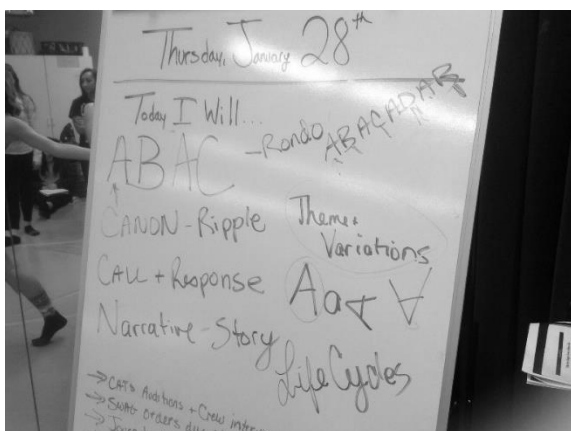 Thursday, January 28th
Today I Will...
ABAC - Rondo ABACADA
CANON - Ripple
Theme +
Variations
CALL + Response
A a
Narrative - Story
Life Cycles
→ CATS Auditions + Crew
→ SWAG orders